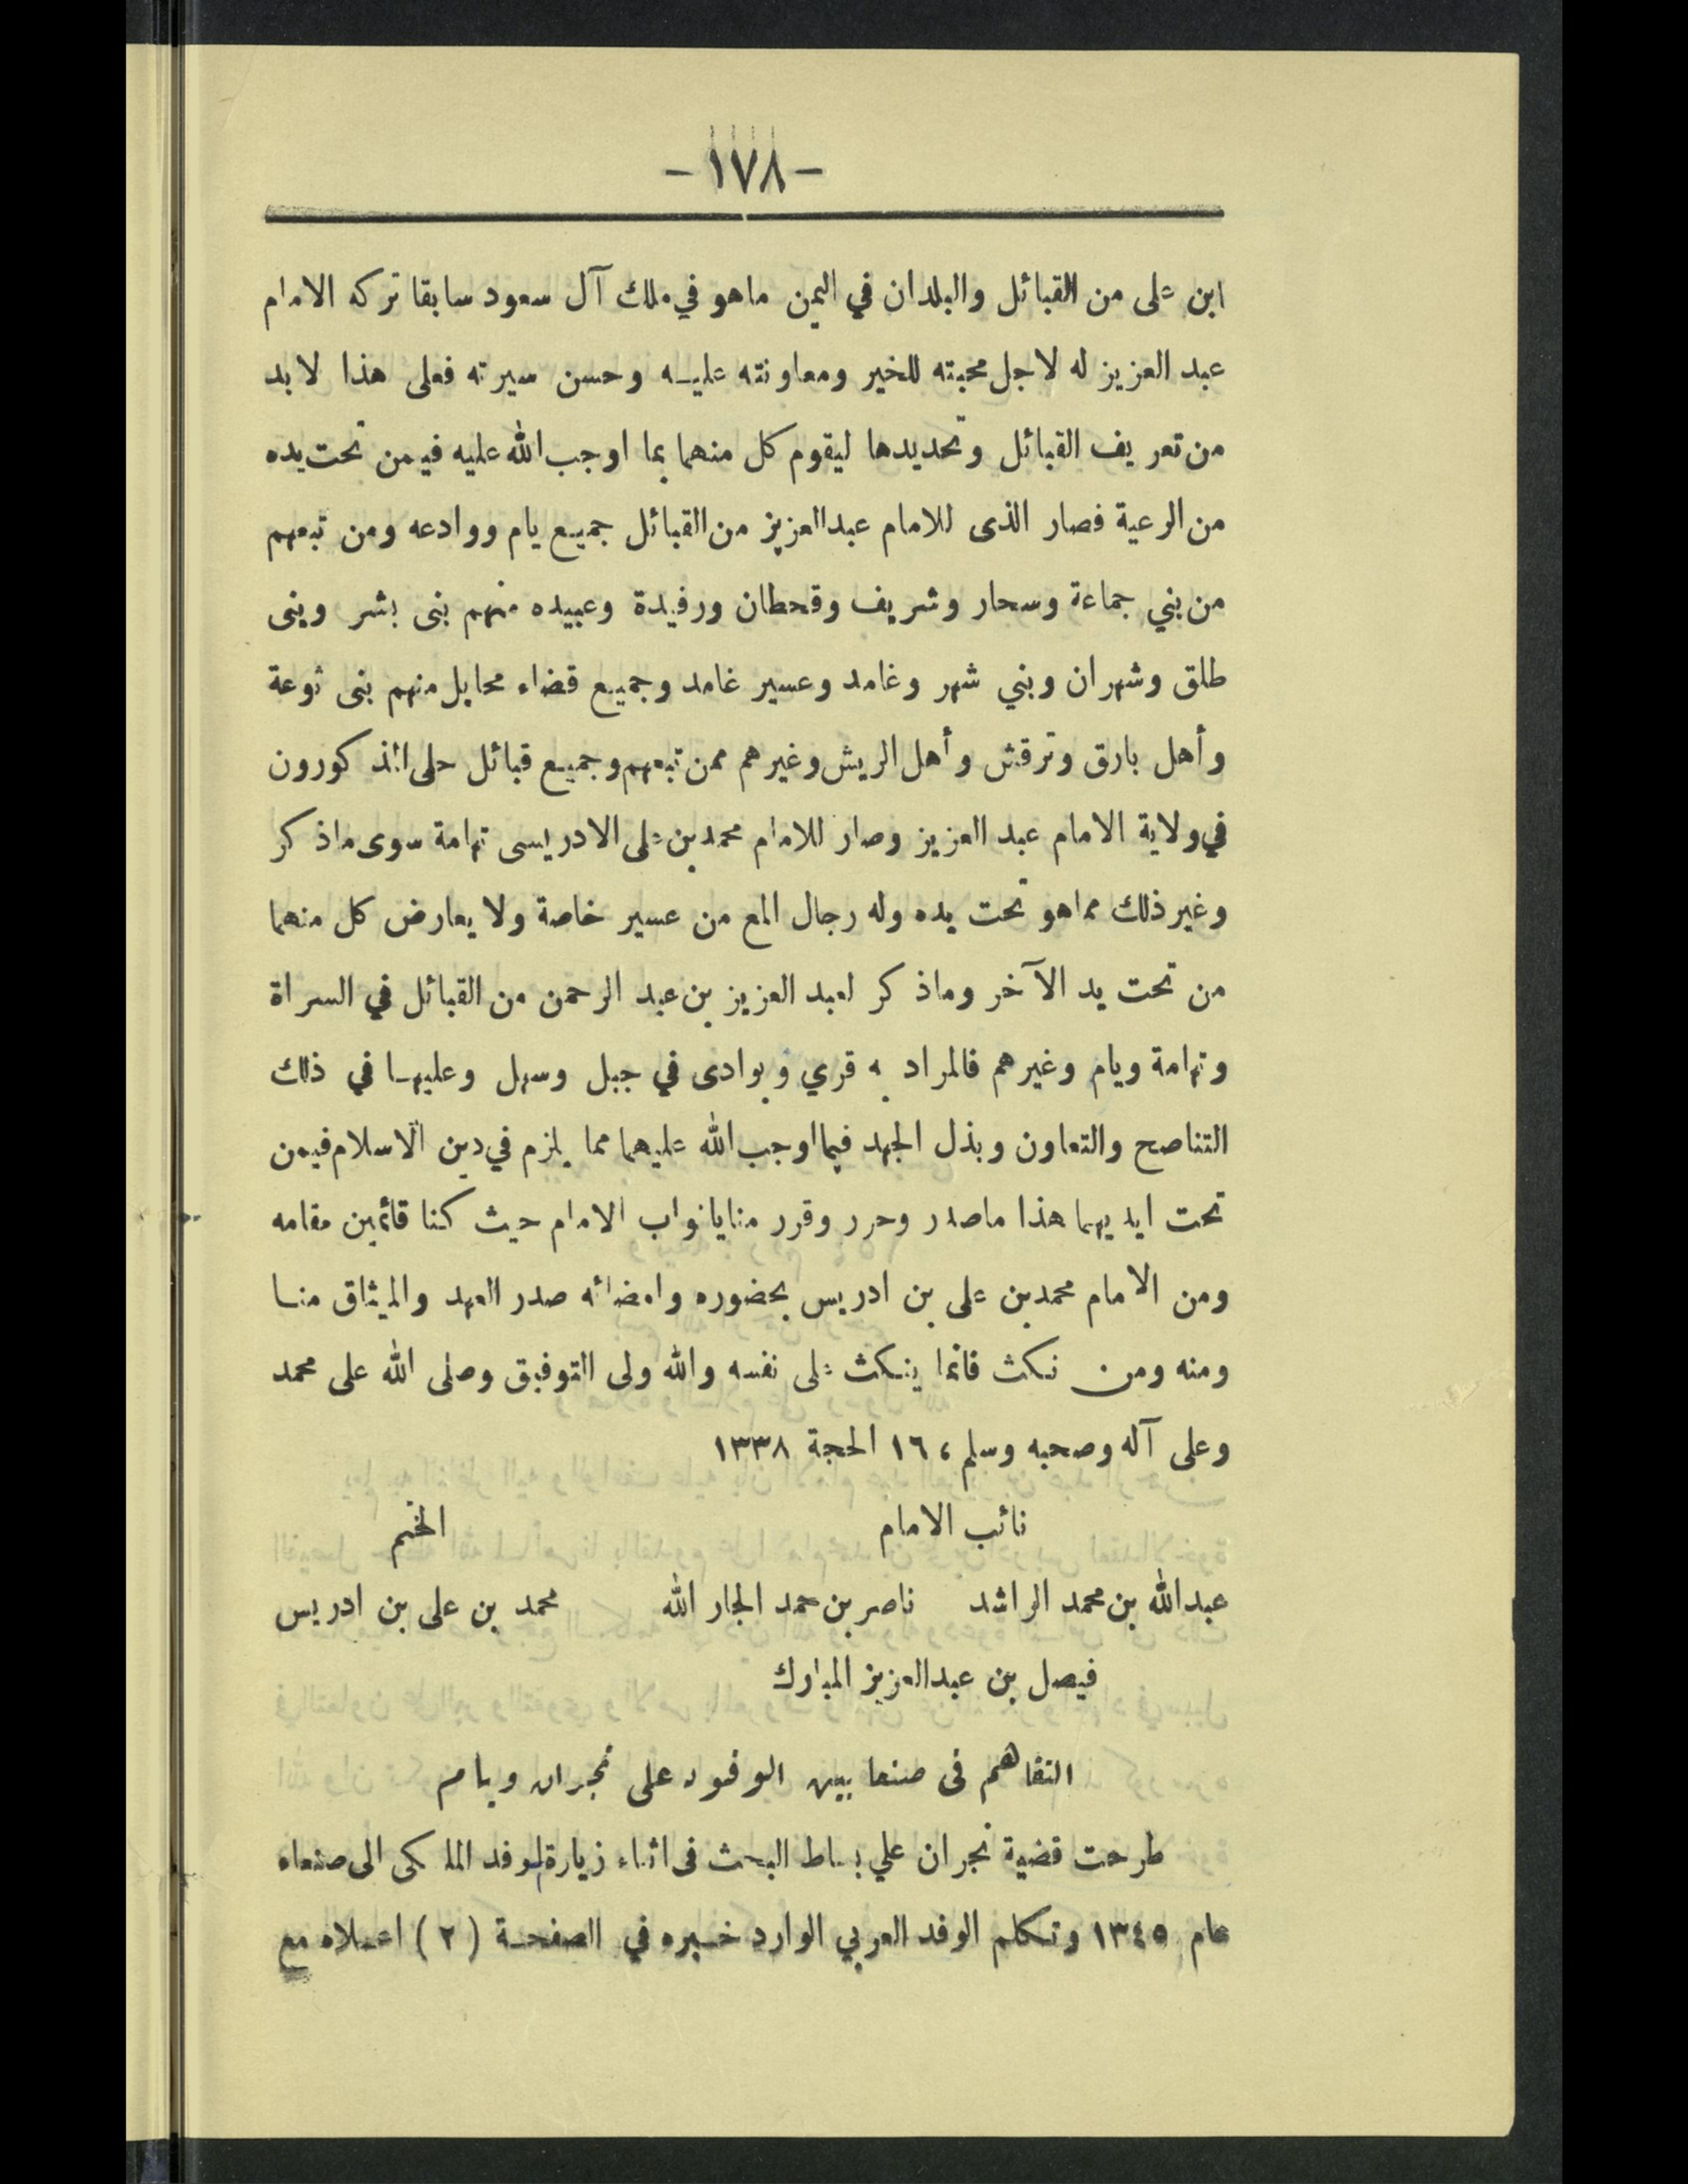 - ١٧٨ -
ابن على من القبائل والبلدان في اليمن ماهو في ملك آل سعود سابقا تركه الامام
عبد العزيز له لاجل محبته للخير ومعاونته عليه وحسن سيرته فعلى هذا لا بد
من تعريف القبائل وتحديدها ليقوم كل منهما بما اوجب الله عليه فيمن تحت يده
من الرعية فصار الذى للامام عبد العزيز من القبائل جميع يام ووادعه ومن تبعهم
من بني جماعة وسحار وشريف وقحطان ورفيدة وعبيده منهم بنى بشر وبنى
طلق وشهران وبني شهر وغامد وعسير غامد وجميع قضاء محايل منهم بنى ثوعة
وأهل بارق وترقش وأهل الريش وغيرهم ممن تبعهم وجميع قبائل حلى المذكورون
في ولاية الامام عبد العزيز وصار للامام محمد بن على الادريسى تهامة سوى ماذكر
وغير ذلك مماهو تحت يده وله رجال المع من عسير خاصة ولا يعارض كل منهما
من تحت يد الآخر وماذكر لعبد العزيز بن عبد الرحمن من القبائل في السراة
وتهامة ويام وغيرهم فالمراد به قري وبوادى في جبل وسهل وعليهما في ذلك
التناصح والتعاون وبذل الجهد فيما اوجب الله عليهما مما يلزم في دين الاسلام فيمن
تحت ايديهما هذا ماصدر وحرر وقرر منايانواب الامام حيث كنا قائمين مقامه
ومن الامام محمد بن على بن ادريس بحضوره وامضائه صدر العهد والميثاق منا
ومنه ومن نكث فانما ينكث على نفسه والله ولى التوفيق وصلى الله على محمد
وعلى آله وصحبه وسلم ، ١٦ الحجة ١٣٣٨
نائب الامام الختم
عبدالله بن محمد الراشد ناصر بن حمد الجار الله محمد بن على بن ادريس
فيصل بن عبدالعزيز المبارك
التفاهم فى صنعا بين الوفود على نجران ويام
طرحت قضية نجران علي بساط البحث فى اثناء زيارة الوفد الملكى الى صنعاء
عام ١٣٤٥ وتكلم الوفد العربي الوارد خبره في الصفحة (٢) اعلاه مع